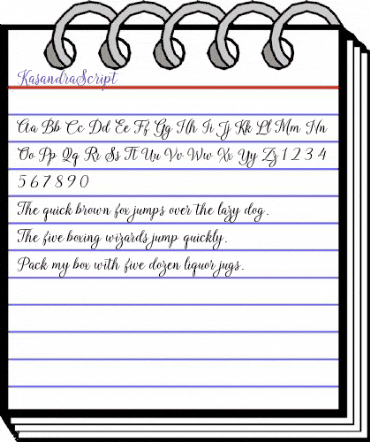 KasandraScript
Aa Bb Cc Dd Ee Ff Gg Hh Ii Jj Kk Ll Mm Nn
Oo Pp Qq Rr Ss Tt Uu Vv Ww Xx Yy Zz 1 2 3 4
5 6 7 8 9 0
The quick brown fox jumps over the lazy dog.
The five boxing wizards jump quickly.
Pack my box with five dozen liquor jugs.